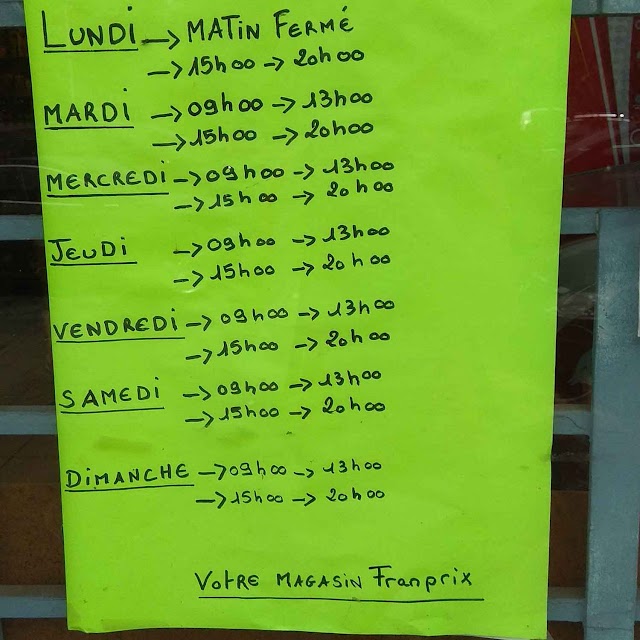 LUNDI → MATIN FERMÉ
→ 15h00 → 20h00
MARDI → 09h00 → 13h00
→ 15h00 → 20h00
MERCREDI → 09h00 → 13h00
→ 15h00 → 20h00
JEUDI → 09h00 → 13h00
→ 15h00 → 20h00
VENDREDI → 09h00 → 13h00
→ 15h00 → 20h00
SAMEDI → 09h00 → 13h00
→ 15h00 → 20h00
DIMANCHE → 09h00 → 13h00
→ 15h00 → 20h00
VOTRE MAGASIN Franprix